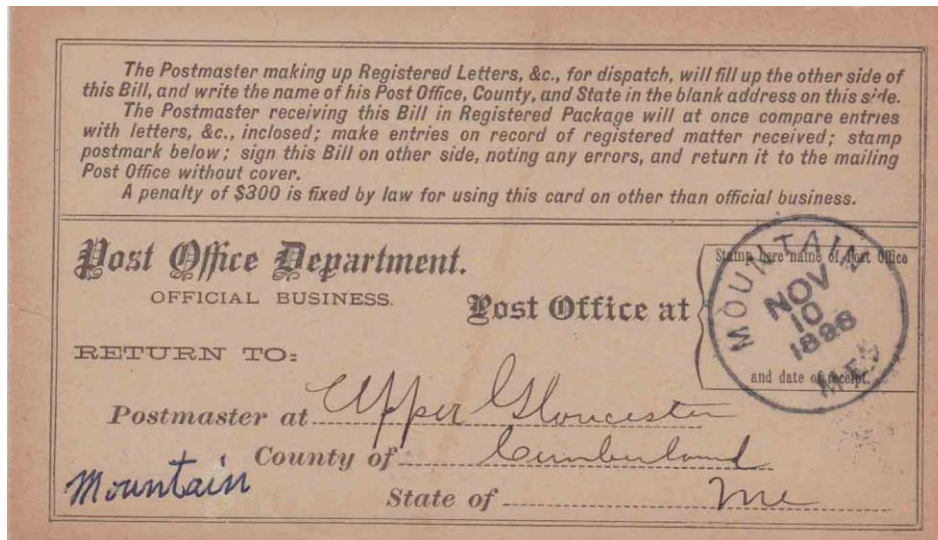 The Postmaster making up Registered Letters, &c., for dispatch, will fill up the other side of
this Bill, and write the name of his Post Office, County, and State in the blank address on this side.
The Postmaster receiving this Bill in Registered Package will at once compare entries
with letters, &c., inclosed; make entries on record of registered matter received; stamp
postmark below; sign this Bill on other side, noting any errors, and return it to the mailing
Post Office without cover.
A penalty of $300 is fixed by law for using this card on other than official business.
Post Office Department.
OFFICIAL BUSINESS.
Post Office at
Stamp here name of Post Office
and date of receipt.
MOUNTAIN
NOV
10
1898
ME.
RETURN TO:
Postmaster at Upper Gloucester
County of Cumberland
Mountain
State of Me